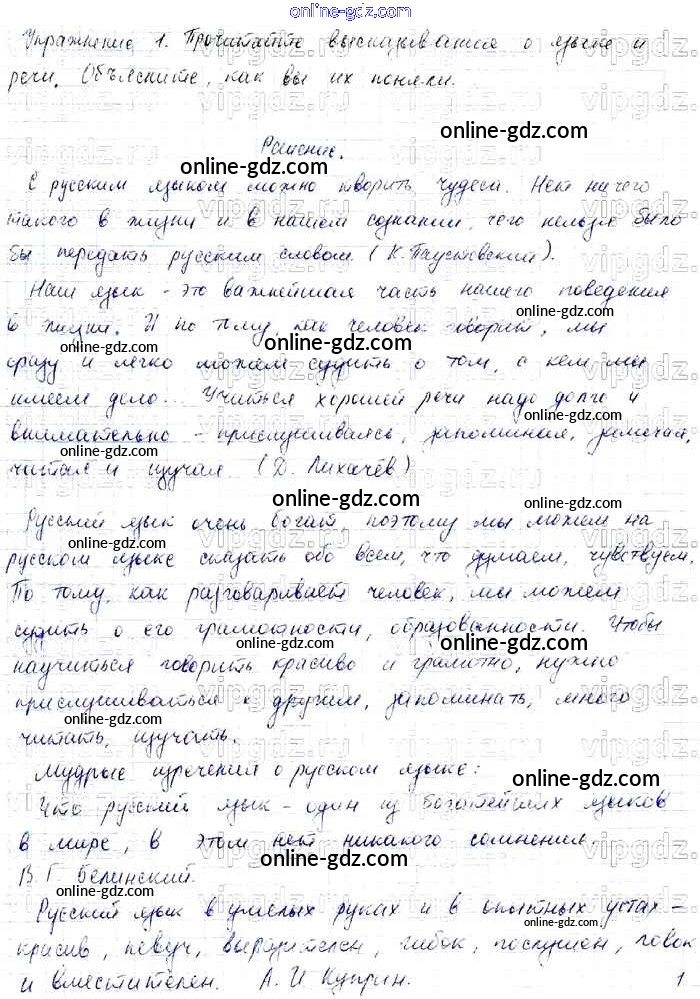 online-gdz.com
Упражнение 1. Прочитайте высказывания о языке и
речи. Объясните, как вы их поняли.
online-gdz.com
Решение.
online-gdz.com
С русским языком можно творить чудеса. Нет ничего
такого в жизни и в нашем сознании, чего нельзя было
бы передать русским словом (К. Паустовский).
Наш язык - это важнейшая часть нашего поведения
в жизни. И по тому, как человек говорит, мы
сразу и легко можем судить о том, с кем мы
имеем дело... Учиться хорошей речи надо долго и
внимательно - прислушиваясь, запоминая, замечая,
читая и изучая (Д. Лихачёв)
Русский язык очень богат, поэтому мы можем на
русском языке сказать обо всем, что думаем, чувствуем.
По тому, как разговаривает человек, мы можем
судить о его грамотности, образованности. Чтобы
научиться говорить красиво и грамотно, нужно
прислушиваться к другим, запоминать, много
читать, изучать.
Мудрые изречения о русском языке:
Что русский язык - один из богатейших языков
в мире, в этом нет никакого сомнения.
В. Г. Белинский.
Русский язык в умелых руках и в опытных устах -
красив, певуч, выразителен, гибок, послушен, ловок
и вместителен. А. И Куприн.
1